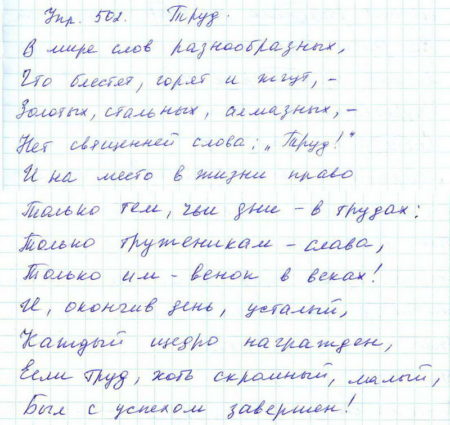 Упр. 502. Труд.
В мире слов разнообразных,
Что блестят, горят и жгут, –
Золотых, стальных, алмазных, –
Нет священней слова: „Труд!“
И на место в жизни право
Только тем, чьи дни – в трудах:
Только труженикам – слава,
Только им – венок в веках!
И, окончив день, усталый,
Каждый щедро награжден,
Если труд, хоть скромный, малый,
Был с успехом завершен!